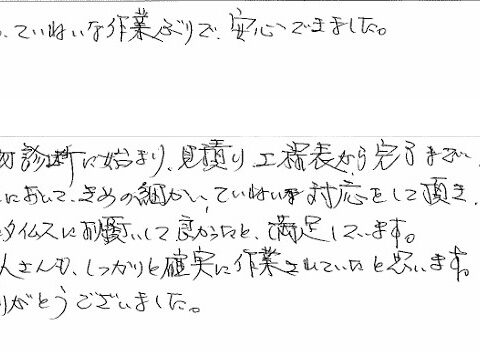 ていねいな作業ぶりで、安心できました。
診断に始まり、見積り、工程表から完了まで、
において、きめの細かい、ていねいな対応をして頂き、
タイムスにお願いして良かったと、満足しています。
人さんも、しっかりと確実に作業されていたと思います。
りがとうございました。